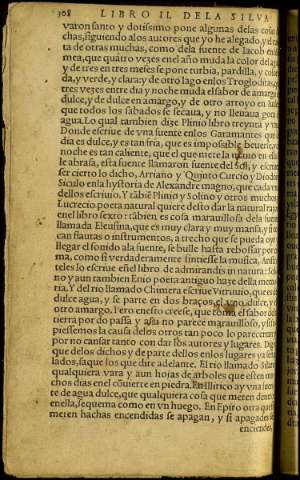 308 LIBRO II. DE LA SILVA
varon santo y dotissimo pone algunas delas cosas di
chas, siguiendo alos autores que yo he alegado, y da
ta de otras muchas, como dela fuente de Iacob en
mea, que quatro vezes enel año muda la color del agua
y de tres en tres meses se pone turbia, pardilla, y colora
da, y verde, y clara y de otro lago enlos Trogloditas, que
tres vezes entre dia y noche muda el sabor de amarga
dulce, y de dulce en amargo, y de otro arroyo en Iudea
que todos los sabados se secaua, y no lleuaua gota de
agua. Lo qual tambien dize Plinio libro treynta y vno
Donde escriue de vna fuente enlos Garamantes que
dia es dulce, y es tan fria, que es impossible beuerse, y
noche es tan caliente, que el que mete la mano en ella
le abrasa, esta fuente llamaron fuente del Sol, y escriuen
ser cierto lo dicho, Arriano y Quinto Curcio y Diodoro
Siculo enla hystoria de Alexandre magno, que cada vno
dellos escriuio. Y tābiē Plinio y Solino y otros muchos
Lucrecio poeta natural quiere desto dar la natural razon
enel libro sexto: tābien es cosa marauillosa dela fuente
llamada Eleusina, que es muy clara y muy mansa, y si to
can flautas o instrumentos, a trecho que se pueda oyr
llegar el sonido ala fuente, se bulle hasta rebossar por
ma, como si verdaderamente sintiesse la musica. Aristo
teles lo escriue enel libro de admirandis in natura: Soli
no y aun tambien Enio poeta antiguo haze della memo
ria. Y del rio llamado Chimera escriue Vitruuio, que es
dulce agua, y se parte en dos braços, el vno dulce, y el
otro amargo. Pero enesto creese, que toma el sabor dela
tierra por do passa y assi no parece marauilloso, y si su
piessemos la causa delos otros tan poco lo pareceran
por no cansar tanto con dar los autores y lugares. Digo
que delos dichos y de parte dellos enlos lugares ya seña
lados, saque los que dire adelante. El rio llamado Silar
qualquiera vara y aun hojas de arboles que esten mu
chos dias enel cōuierte en piedra. En Illirico ay vna fuen
te de agua dulce, que qualquiera cosa que meten dentro
enella, se quema como en vn huego. En Epiro otra que si
meten hachas encendidas se apagan, y si apagadas se
encienden,